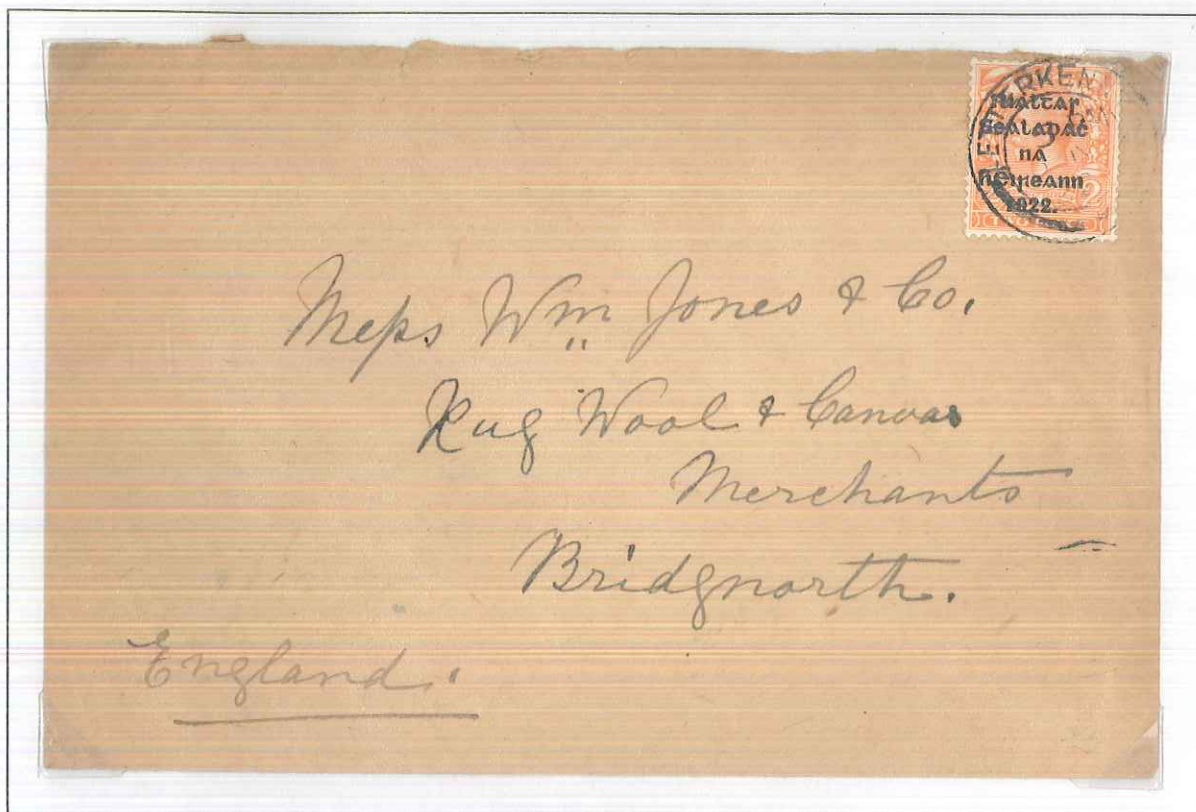 LETTERKEN
Rialtas
Sealadać
na
hÉireann
1922.
2
Messrs Wm Jones & Co.
Rug Wool & Canvas
Merchants
Bridgnorth.
England.